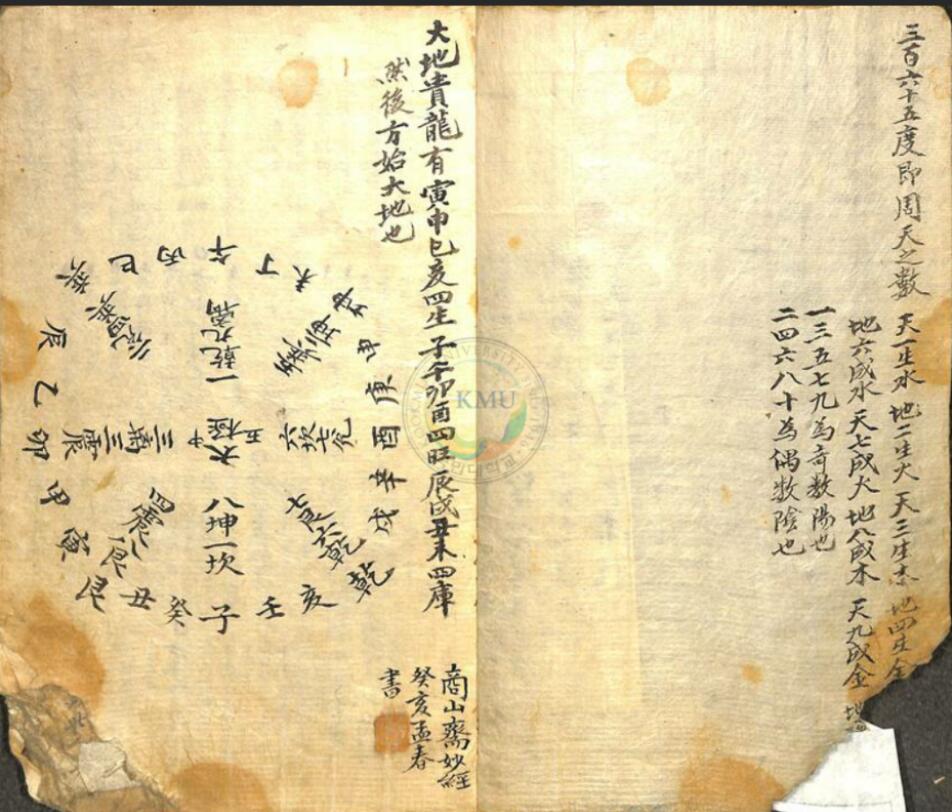 三百六十五度即周天之數 天一生水 地二生火 天三生木 地四生金
地六成水 天七成火 地八成木 天九成金 地
一三五七九為奇數陽也
二四六八十為偶數陰也
大地貴龍有寅申巳亥四生子午卯酉四旺辰戌丑未四庫
然後方始大地也
午
丁
未
坤
申
庚
酉
辛
戌
乾
亥
壬
子
癸
丑
艮
寅
甲
卯
乙
辰
巽
巳
丙
一乾九離
六坎七兌
七艮六乾
八坤一坎
四震八艮
三離三震
太極
中
五
商山齋妙經
癸亥孟春
書
KMU